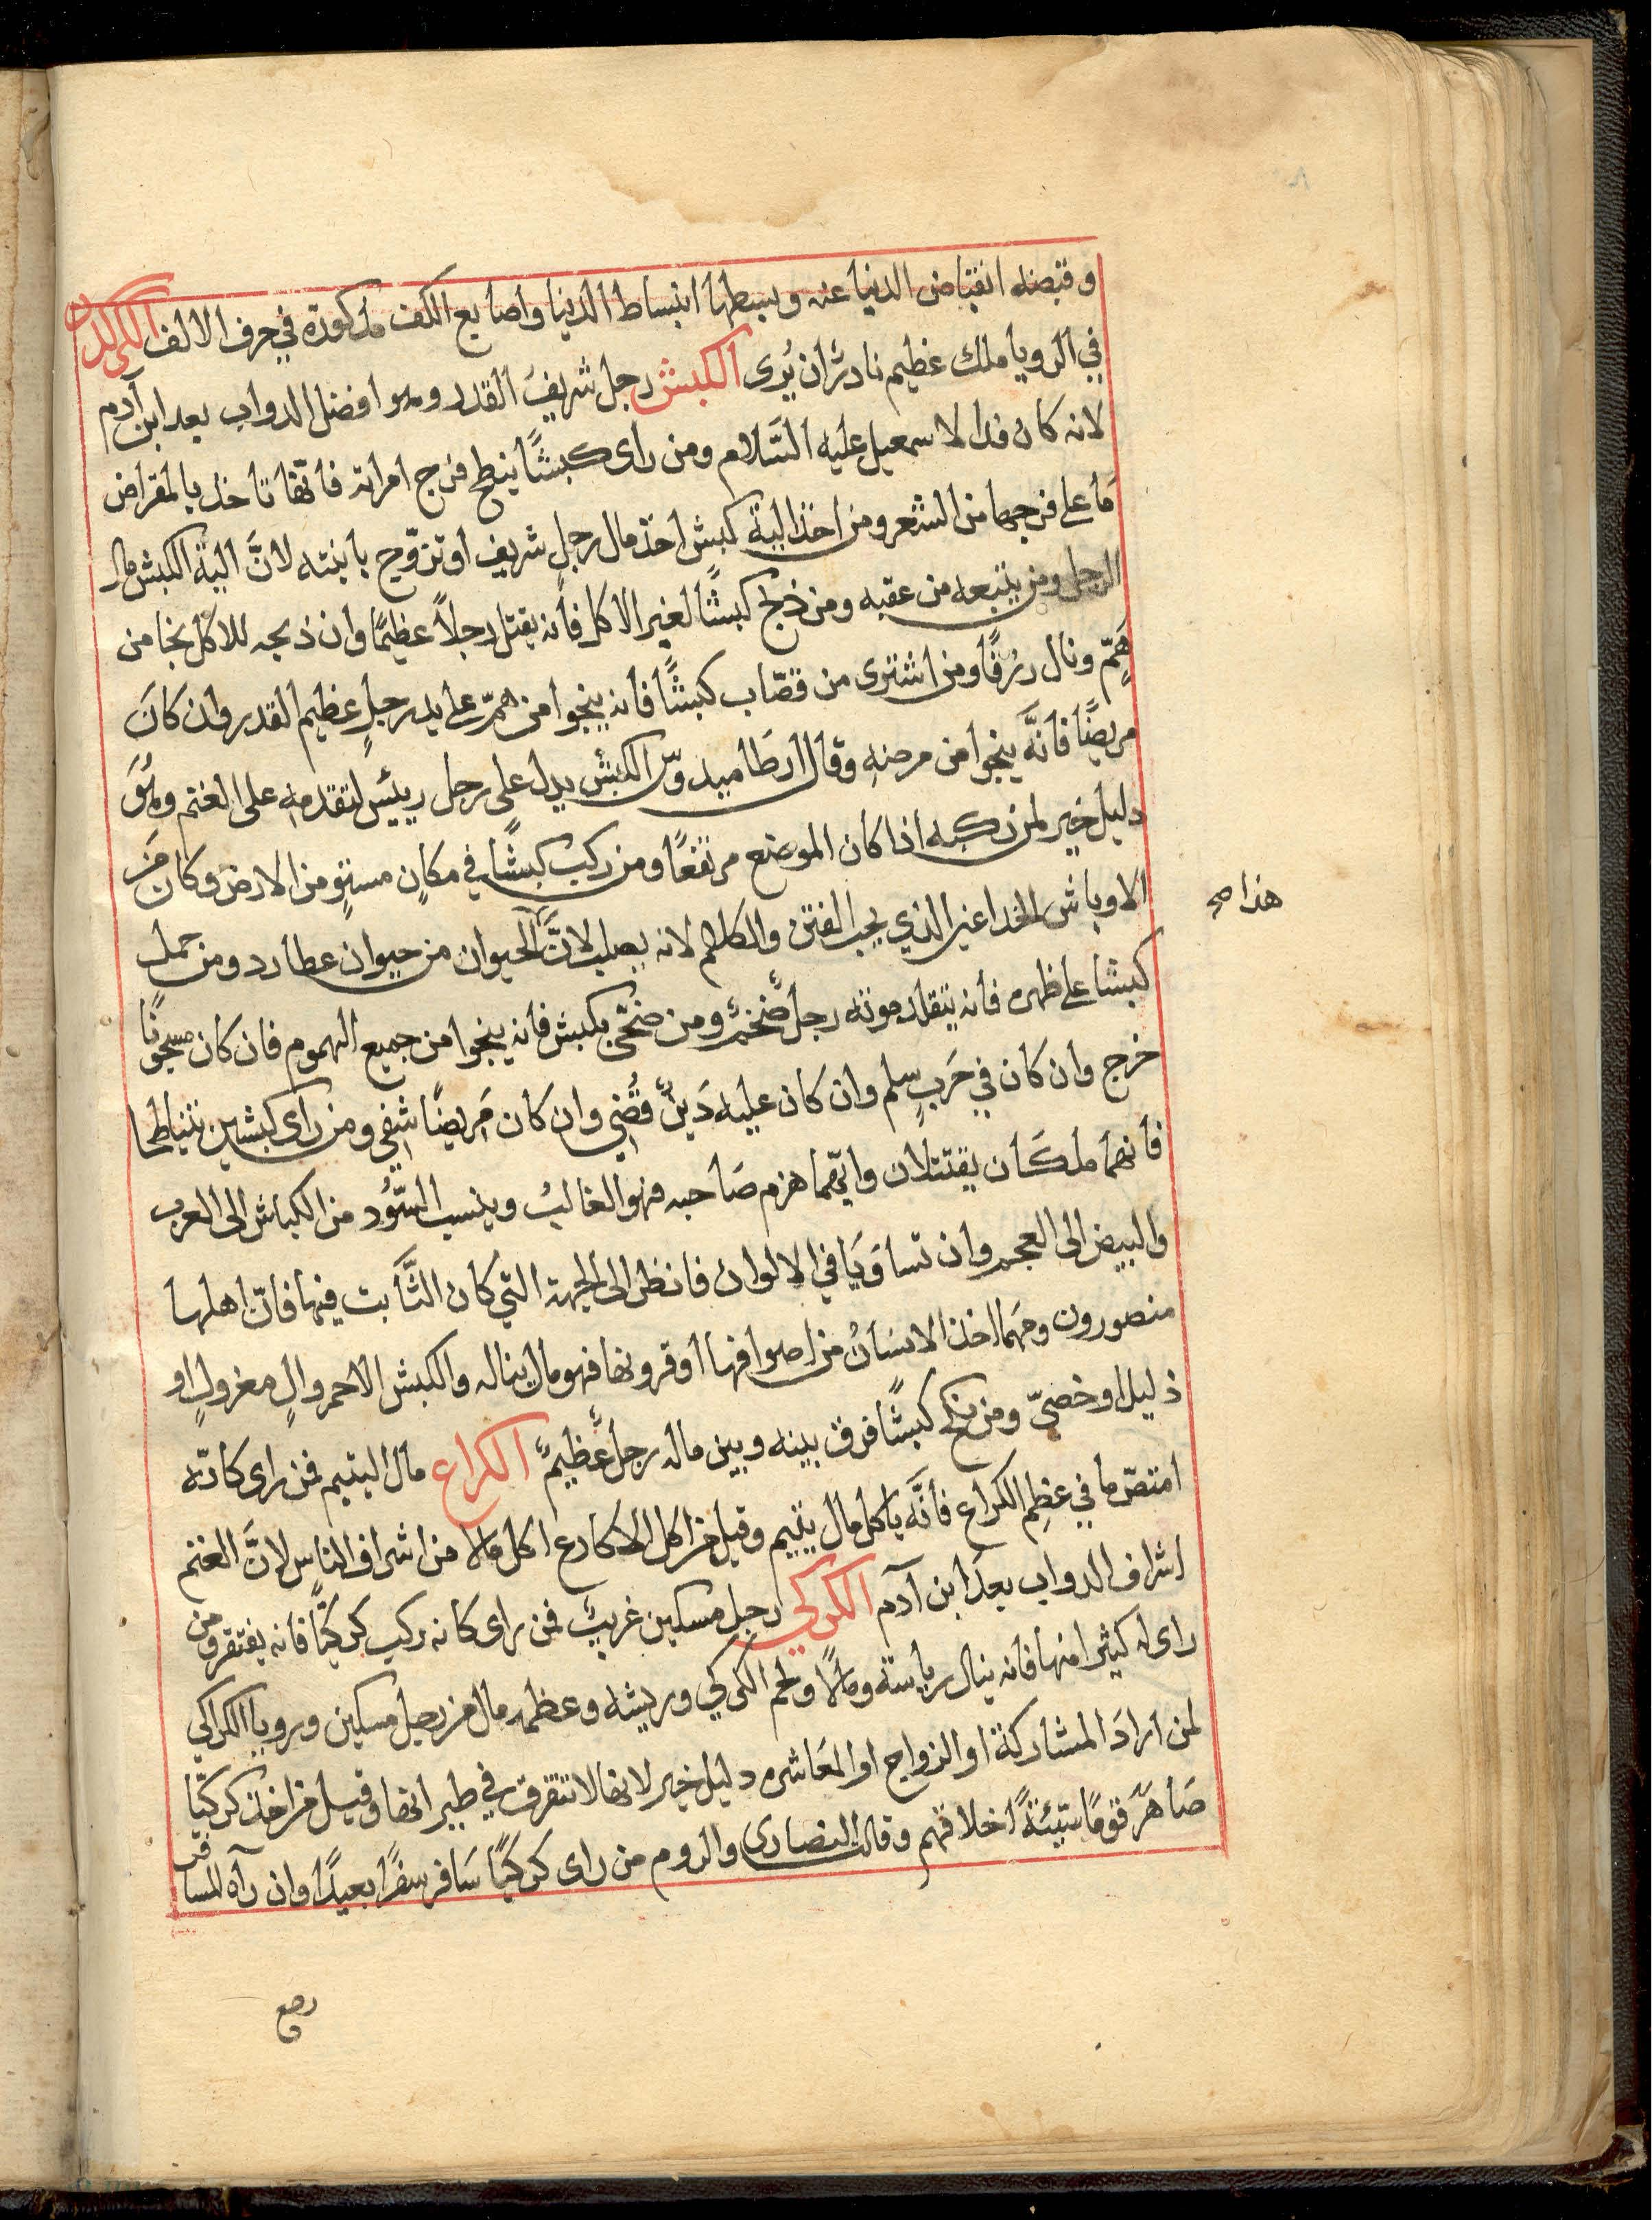 وقبضه انقباض الدنيا عنه وبسطها انبساط الدنيا واصابع الكف مذكورة في حرف الالف الكركدن
في الرويا ملك عظيم نادرًا ان يُرى الكبش رجل شريف القدر وهو افضل الدواب بعد ابن آدم
لانه كان فدا لاسمعيل عليه السَّلام ومن راى كبشًا ينطح فرج امراته فانّها تاخذ بالمقراض
مَا على فرجها من الشعر ومن اخذ الية كبش اخذ مال رجلٍ شريف او تزوّج بابنته لانَّ الية الكبش مال
الرجل ومن يتبعه من عقبه ومن ذبح كبشًا لغير الاكل فانه يقتل رجلاً عظيمًا وان ذبحه للاكل نجا من
هَمّ ونال رزقًا ومن اشترى من قصّاب كبشًا فانه ينجوا من همّ على يد رجلٍ عظيم القدر وان كانَ
مريضًا فانَّه ينجوا من مرضه وقال ارطاميدوس الكبش يدل على رجل رييس لتقدمه على الغنم وهُوَ
دليل خير لمن ركبه اذا كان الموضع مرتفعًا ومن ركب كبشًا في مكانٍ مستوٍ من الارض وكان من
الاوباش الخداعين الذي يحب الفتن والكلام لانه يصلب لانَّ الحيوان من حيوان عطارد ومن حمل
هذا صح
كبشا على ظهره فانه يتقلد موته رجل ضخم ومن ضحّى بكبش فانه ينجوا من جميع الهموم فان كان مسجونًا
خرج وان كان في حَربٍ سلم وان كان عليه دَينٌ قُضي وان كان مَريضًا شفي ومن راى كبشين يتناطحا
فانهما ملكَان يقتتلان وايّهما هزم صَاحبه فهو الغالبُ وينسب السّوُد من الكباش الى العرب
والبيض الى العجم وان تساوَيَا في الالوان فانظر الى الجهة التي كان الثَّابت فيها فانّ اهلها
منصورون ومَهما اخذ الانسَانُ من اصوافها او قرونها فهو مال يناله والكبش الاحمر والٍ معزولٍ او
ذليل او خصيّ ومن نكح كبشًا فرق بينه وبين ماله رجل عظيمٌ الكراع مال اليتيم فمن راى كانّه
امتصّ ما في عظمِ الكراع فانَّه ياكل مال يتيم وقيل من اكل الاكارع اكل مالا من اشراف الناس لانَّ الغنم
اشراف الدواب بعدَ ابن آدم الكركي رجل مسكين غريبٌ فمن راى كانه ركب كركيًّا فانه يفتقر ومن
راى له كثيرا منها فانه ينال رياسة ومالاً ولحم الكركي وريشه وعظمه مال من رجل مسكين ورويا الكراكي
لمن ارادَ المشاركة او الزواج او المعَاشره دليل خير لانها لا تتفرق في طيرانها وقيل من اخذ كركيّا
صَاهرَ قومًا سَيّئةً اخلاقهم وقالت النصارى والروم من راى كركيًّا سَافر سفرًا بعيدًا وان رآه المسافر
رجع